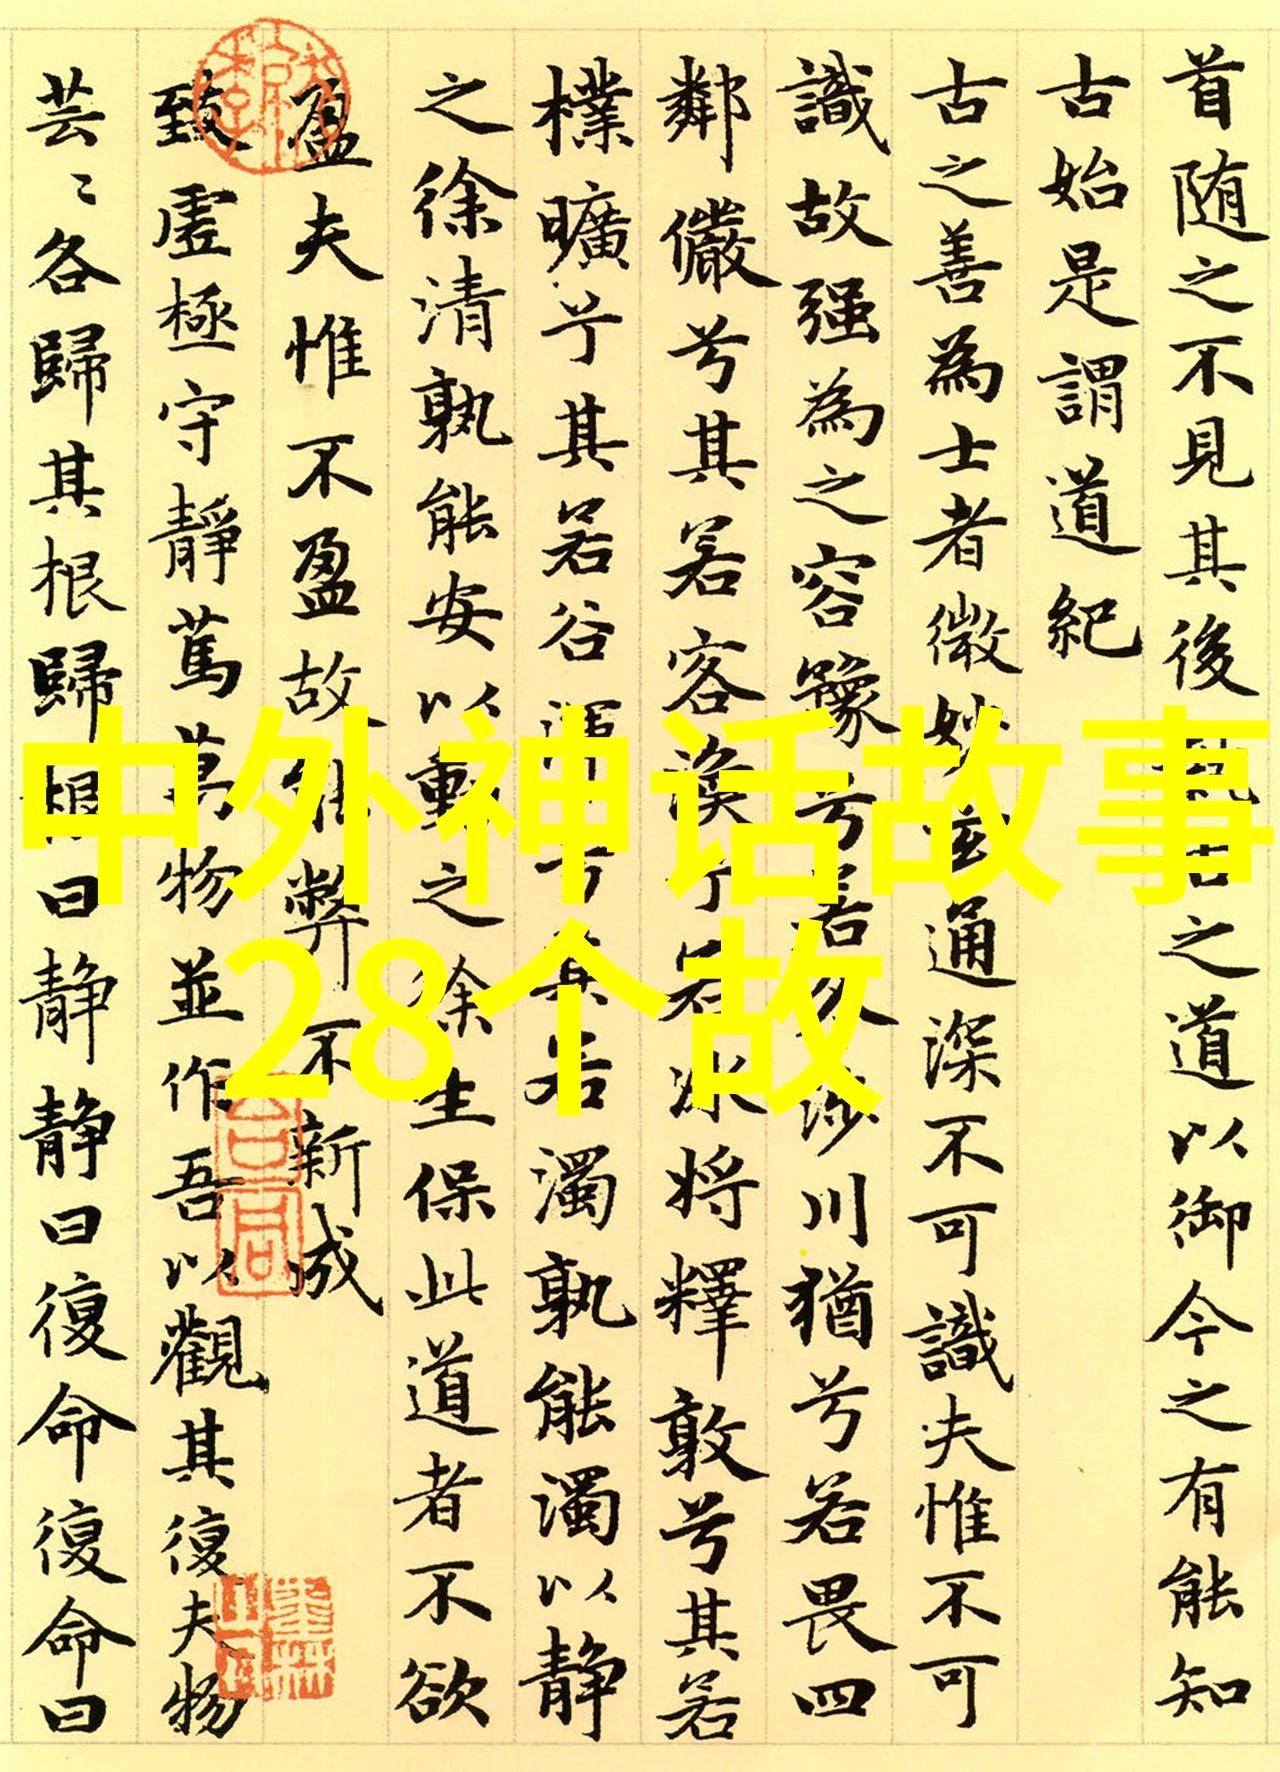 首随之不見其後執古之道以御今之有能知
古始是謂道紀
古之善為士者微妙玄通深不可識夫惟不可
識故强為之容豫兮若冬涉川猶兮若畏四
鄰儼兮其若客渙兮若冰将釋敦兮其若
樸曠兮其若谷渾兮其若濁孰能濁以静
之徐清孰能安以動之徐生保此道者不欲
盈夫惟不盈故能弊不新成
致虚極守靜篤萬物並作吾以觀其復夫物
芸〻各歸其根歸根曰静静曰復命復命曰
中外神话故事
28个故